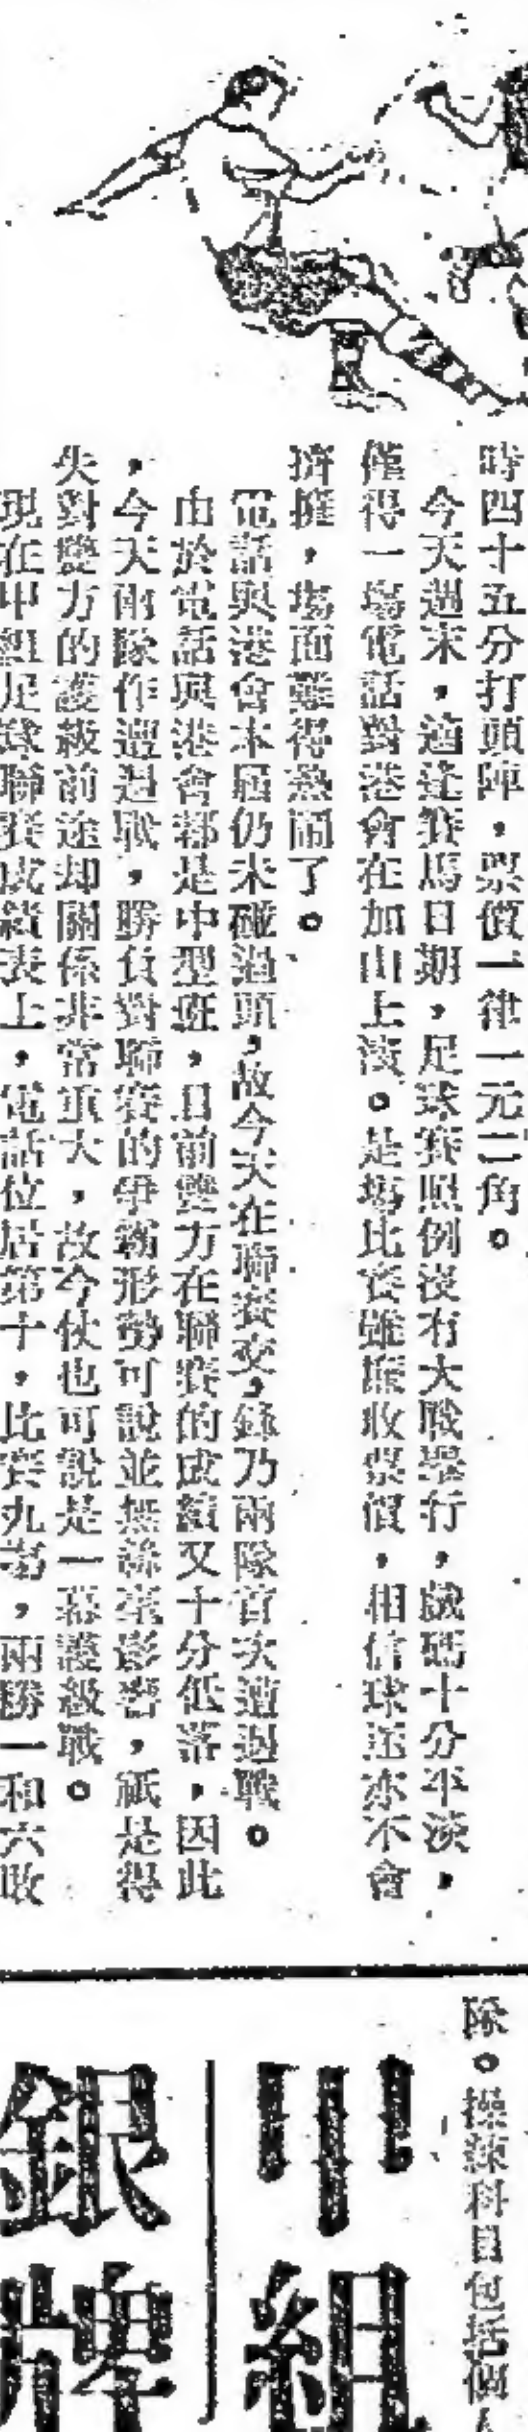 時四十五分打頭陣，票價一律一元二角。
今天週末，適逢賽馬日期，足球賽照例沒有大戰舉行，戲碼十分平淡，
僅得一場電話對港會在加山上演。是場比賽雖廉收票價，相信球迷亦不會
擠擁，場面難得熱鬧了。
電話與港會本屆仍未碰過頭，故今天在聯賽交鋒乃兩隊首次遭遇戰。
由於電話與港會都是中型班，目前雙方在聯賽的成績又十分低落，因此
，今天兩隊作遭遇戰，勝負對聯賽的爭霸形勢可說並無絲毫影響，祇是得
失對雙方的護級前途却關係非常重大，故今仗也可說是一幕護級戰。
現在甲組足球聯賽成績表上，電話位居第十，比賽九場，兩勝一和六敗
除。操練科目包括個
小組
銀牌